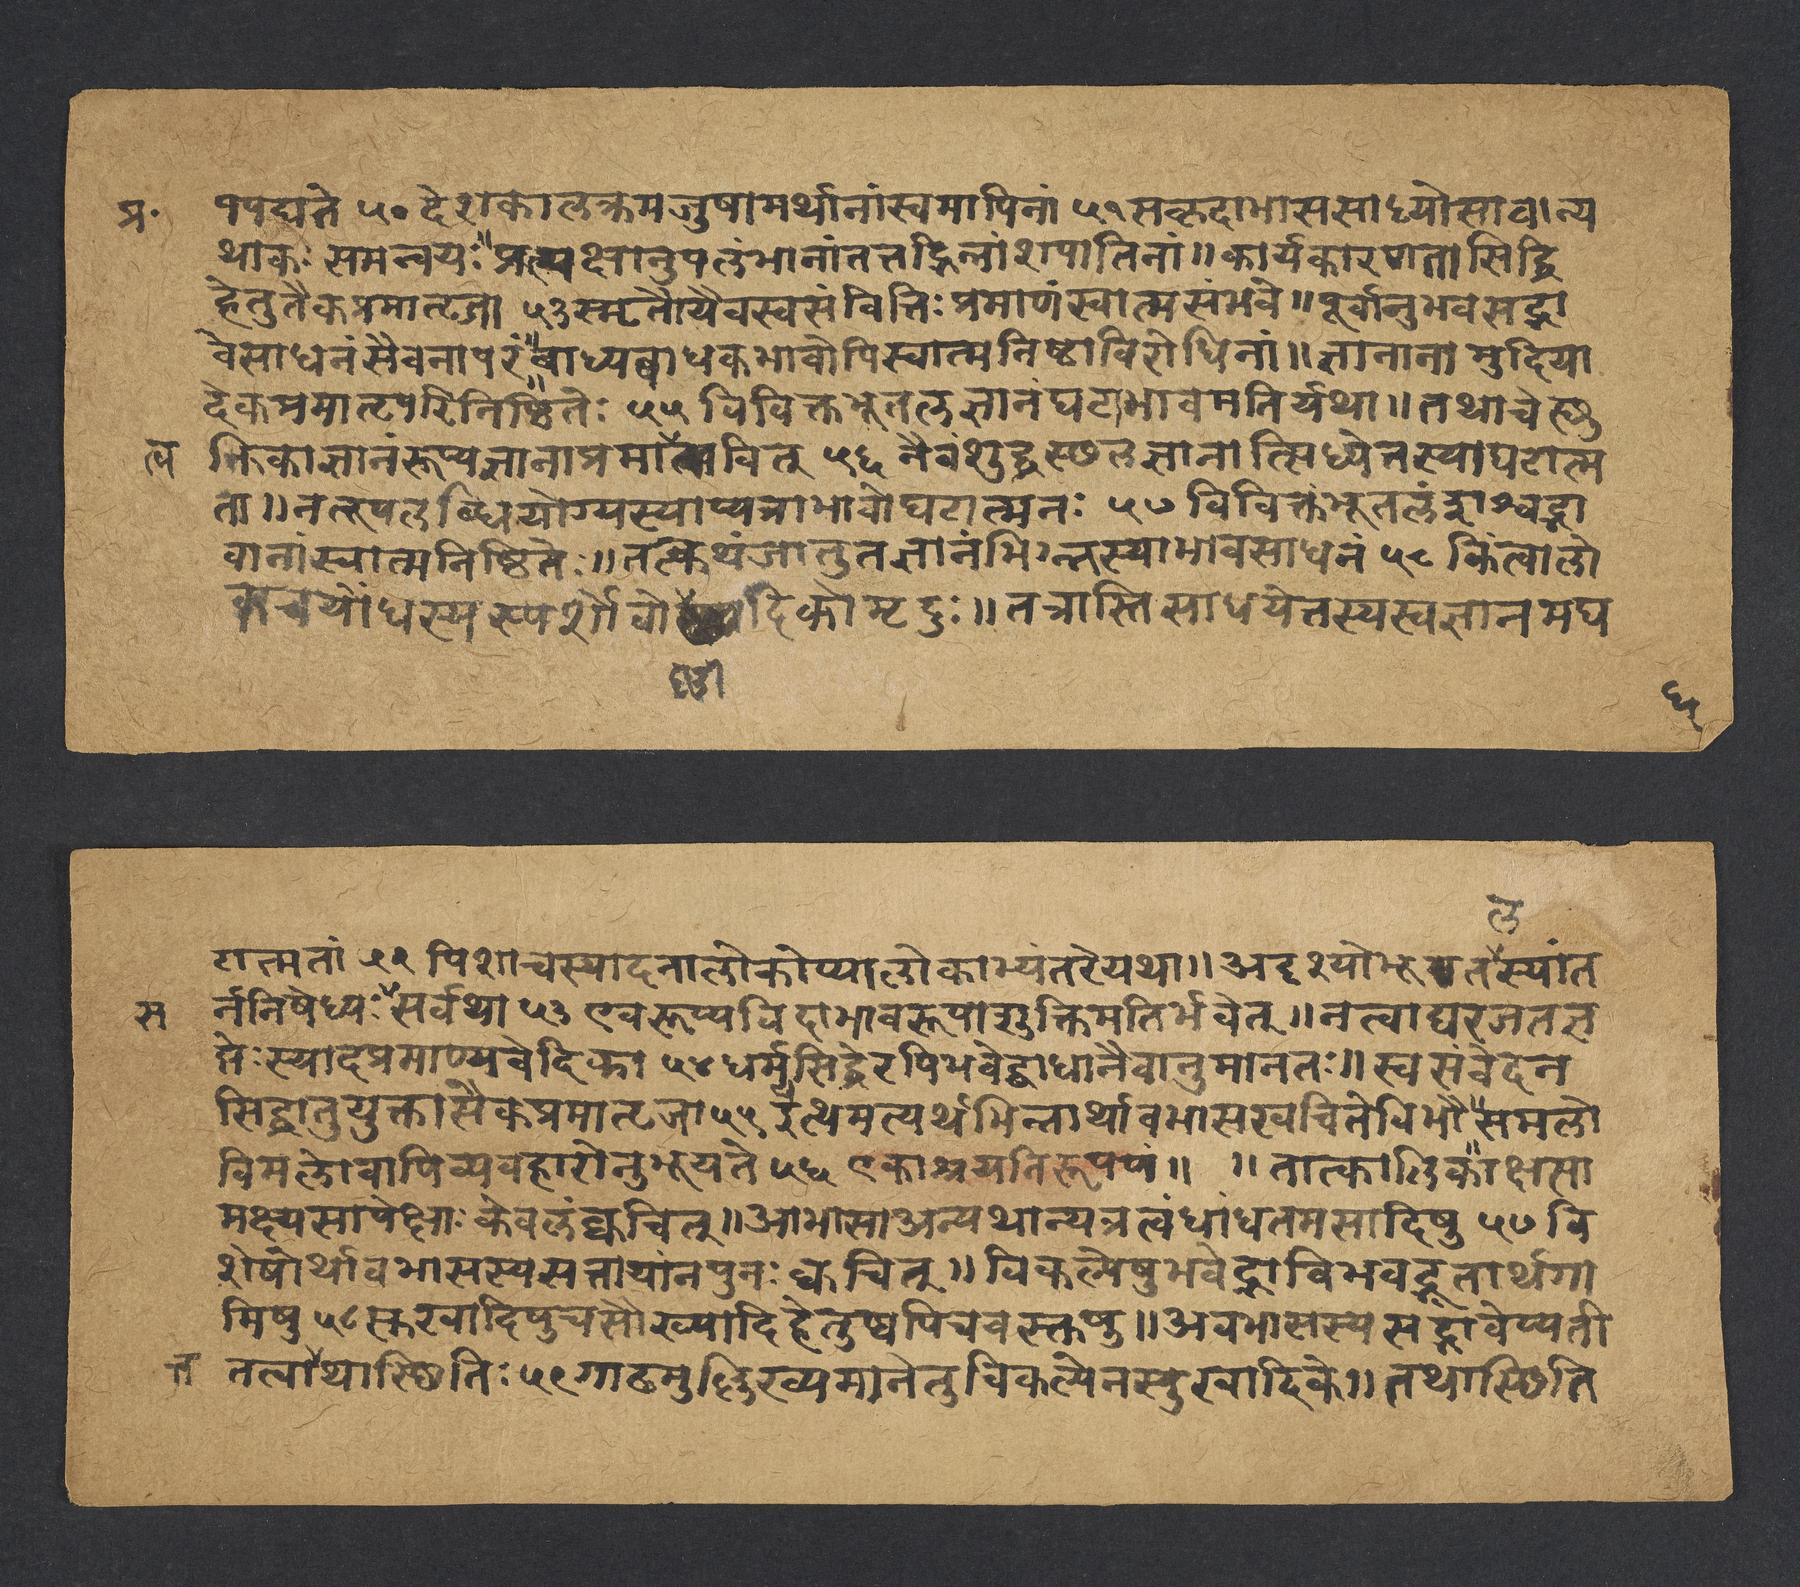 प्र॰ १पद्यते ५० देशकालक्रमजुषामर्थानांस्वमापिनां ५१ सकृदाभाससाध्योसावान्य
थाकः समन्वयः॥प्रत्यक्षानुपलंभानांतत्तद्भिन्नांशपातिनां॥ कार्यकारणतासिद्धि
हेतुतैकप्रमातृजा ५३ स्मृतौयैवस्वसंवित्तिः प्रमाणंस्वात्मसंभवे॥ पूर्वानुभवसद्भा
वेसाधनंसैवनापरं॥बाध्यबाधकभावोपिस्वात्मनिष्ठाविरोधिनां॥ ज्ञानानामुदिया
देकप्रमातृपरिनिष्ठितेः ५५ विविक्तभूतलज्ञानंघटाभावमतिर्यथा॥ तथाचेच्छु
त्व क्तिकाज्ञानंरूप्यज्ञानाप्रमात्ववित् ५६ नैवंशुद्धस्थलज्ञानात्सिध्येत्तस्याघटात्म
ता॥ नतूपलब्धियोग्यस्याप्यत्राभावोघटात्मनः ५७ विविक्तंभूतलंशश्वद्भा
वानांस्वात्मनिष्ठितेः॥ तत्कथंजातुतज्ञानंभिन्नस्याभावसाधनं ५८ किंत्वालो
कचयोंधस्यस्पर्शोवो दिकोमृदुः॥ तत्रास्तिसाधयेत्तस्यस्वज्ञानमघ
ष्णा
५
लु
टात्मतां ५२ पिशाचस्यादनालोकोप्यालोकाभ्यंतरेयथा॥ अदृश्योभू तस्यांत
स र्ननिषेध्यः॥सर्वथा ५३ एवंरूप्यविदाभावरूपाशुक्तिमतिर्भवेत्॥ नत्वाद्यरजतज्ञ
प्तेःस्यादप्रमाण्यवेदिका ५४ धर्म्यसिद्धेरपिभवेद्बाधानैवानुमानतः॥ स्वसंवेदन
सिद्धातुयुक्तासैकप्रमातृजा ५५ इत्थमत्यर्थभिन्नार्थावभासखचितेविभौ॥समलो
विमलोवापिव्यवहारोनुभूयते ५६ एकाश्रयनिरूपणं॥ ॥ तात्कालिकाक्षसा
मक्ष्यसापेक्षाः केवलंक्वचित्॥ आभासाअन्यथान्यत्रत्वंधांधतमसादिषु ५७ वि
शेषोर्थावभासस्यसत्तायांनपुनः क्वचित्॥ विकल्पेषुभवेद्भाविभवद्भूतार्थगा
मिषु ५८ सुखादिषुचसौख्यादिहेतुष्वपिचवस्तुषु॥ अवभासस्यसद्भावेप्यती
त तत्वात्तथास्थितिः ५९ गाढमुल्लिख्यमानेतुविकल्पेनसुखादिके॥ तथास्थिति